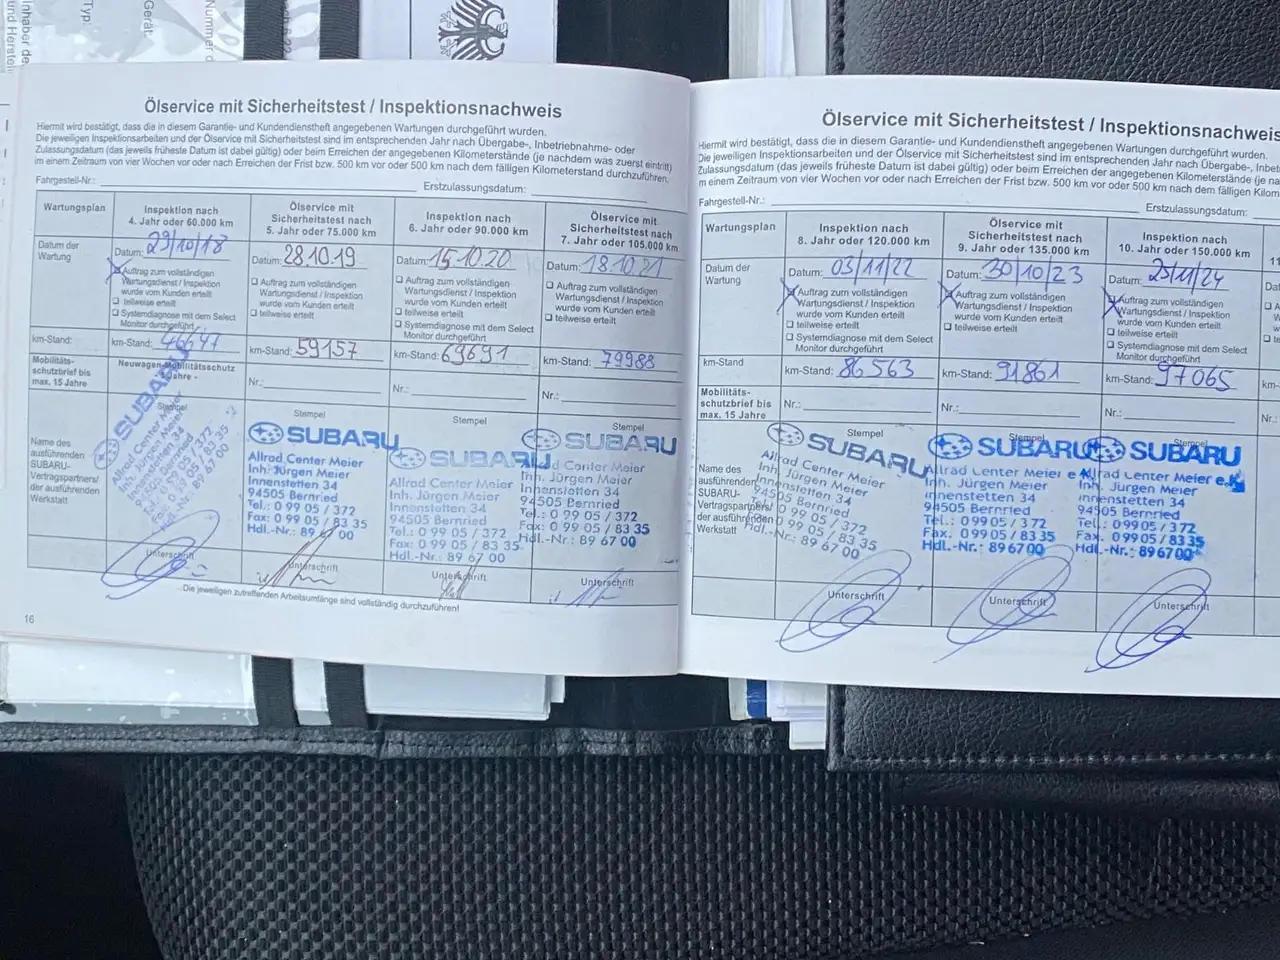 Inhaber de
und Herstell
Typ:
Gerät:
Nummer d
Ölservice mit Sicherheitstest / Inspektionsnachweis
Hiermit wird bestätigt, dass die in diesem Garantie- und Kundendienstheft angegebenen Wartungen durchgeführt wurden.
Die jeweiligen Inspektionsarbeiten und der Ölservice mit Sicherheitstest sind im entsprechenden Jahr nach Übergabe-, Inbetriebnahme- oder
Zulassungsdatum (das jeweils früheste Datum ist dabei gültig) oder beim Erreichen der angegebenen Kilometerstände (je nachdem was zuerst eintritt)
im einem Zeitraum von vier Wochen vor oder nach Erreichen der Frist bzw. 500 km vor oder 500 km nach dem fälligen Kilometerstand durchzuführen.
Fahrgestell-Nr.:
Erstzulassungsdatum:
Wartungsplan
Inspektion nach
4. Jahr oder 60.000 km
Ölservice mit
Sicherheitstest nach
5. Jahr oder 75.000 km
Inspektion nach
6. Jahr oder 90.000 km
Ölservice mit
Sicherheitstest nach
7. Jahr oder 105.000 km
Datum der
Wartung
Datum: 29/10/18
Auftrag zum vollständigen
Wartungsdienst / Inspektion
wurde vom Kunden erteilt
teilweise erteilt
Systemdiagnose mit dem Select
Monitor durchgeführt
Datum: 28.10.19
Auftrag zum vollständigen
Wartungsdienst / Inspektion
wurde vom Kunden erteilt
teilweise erteilt
Datum: 15.10.20
Auftrag zum vollständigen
Wartungsdienst / Inspektion
wurde vom Kunden erteilt
teilweise erteilt
Systemdiagnose mit dem Select
Monitor durchgeführt
Datum: 18.10.21
Auftrag zum vollständigen
Wartungsdienst / Inspektion
wurde vom Kunden erteilt
teilweise erteilt
km-Stand:
km-Stand: 46647
km-Stand: 59157
km-Stand: 69691
km-Stand: 79988
Mobilitäts-
schutzbrief bis
max. 15 Jahre
Neuwagen-Mobilitätsschutz
- Jahre -
Nr.:
Nr.:
Nr.:
Name des
ausführenden
SUBARU-
Vertragspartners/
der ausführenden
Werkstatt
Stempel
SUBARU
Allrad Center Meier
Inh. Jürgen Meier
Innenstetten 34
94505 Bernried
Tel.: 0 99 05 / 372
Fax: 0 99 05 / 83 35
Hdl.-Nr.: 89 67 00
Stempel
SUBARU
Allrad Center Meier
Inh. Jürgen Meier
Innenstetten 34
94505 Bernried
Tel.: 0 99 05 / 372
Fax: 0 99 05 / 83 35
Hdl.-Nr.: 89 67 00
Stempel
SUBARU
Allrad Center Meier
Inh. Jürgen Meier
Innenstetten 34
94505 Bernried
Tel.: 0 99 05 / 372
Fax: 0 99 05 / 83 35
Hdl.-Nr.: 89 67 00
Stempel
SUBARU
Center Meier
Inh. Jürgen Meier
Innenstetten 34
94505 Bernried
Tel.: 0 99 05 / 372
Fax: 0 99 05 / 83 35
Hdl.-Nr.: 89 67 00
Unterschrift
Unterschrift
Unterschrift
Unterschrift
Die jeweiligen zutreffenden Arbeitsumfänge sind vollständig durchzuführen!
16
Ölservice mit Sicherheitstest / Inspektionsnachweis
Hiermit wird bestätigt, dass die in diesem Garantie- und Kundendienstheft angegebenen Wartungen durchgeführt wurden.
Die jeweiligen Inspektionsarbeiten und der Ölservice mit Sicherheitstest sind im entsprechenden Jahr nach Übergabe-, Inbet
Zulassungsdatum (das jeweils früheste Datum ist dabei gültig) oder beim Erreichen der angegebenen Kilometerstände (je na
m einem Zeitraum von vier Wochen vor oder nach Erreichen der Frist bzw. 500 km vor oder 500 km nach dem fälligen Kilom
Fahrgestell-Nr.:
Erstzulassungsdatum:
Wartungsplan
Inspektion nach
8. Jahr oder 120.000 km
Ölservice mit
Sicherheitstest nach
9. Jahr oder 135.000 km
Inspektion nach
10. Jahr oder 150.000 km
11
Datum der
Wartung
Datum: 03/11/22
Auftrag zum vollständigen
Wartungsdienst / Inspektion
wurde vom Kunden erteilt
teilweise erteilt
Systemdiagnose mit dem Select
Monitor durchgeführt
Datum: 30/10/23
Auftrag zum vollständigen
Wartungsdienst / Inspektion
wurde vom Kunden erteilt
teilweise erteilt
Datum: 25/11/24
Auftrag zum vollständigen
Wartungsdienst / Inspektion
wurde vom Kunden erteilt
teilweise erteilt
Systemdiagnose mit dem Select
Monitor durchgeführt
Dat
km-Stand
km-Stand: 86563
km-Stand: 91861
km-Stand: 97065
km-
Mobilitäts-
schutzbrief bis
max. 15 Jahre
Nr.:
Nr.:
Nr.:
Nr.:
Name des
ausführenden
SUBARU-
Vertragspartners/
der ausführenden
Werkstatt
Stempel
SUBARU
Allrad Center Meier
Inh. Jürgen Meier
Innenstetten 34
94505 Bernried
Tel.: 0 99 05 / 372
Fax: 0 99 05 / 83 35
Hdl.-Nr.: 89 67 00
Stempel
SUBARU
Allrad Center Meier e.K.
Inh. Jürgen Meier
Innenstetten 34
94505 Bernried
Tel.: 0 99 05 / 372
Fax: 0 99 05 / 83 35
Hdl.-Nr.: 89 67 00
Stempel
SUBARU
Allrad Center Meier e.K.
Inh. Jürgen Meier
Innenstetten 34
94505 Bernried
Tel.: 0 99 05 / 372
Fax: 0 99 05 / 83 35
Hdl.-Nr.: 89 67 00
Unterschrift
Unterschrift
Unterschrift